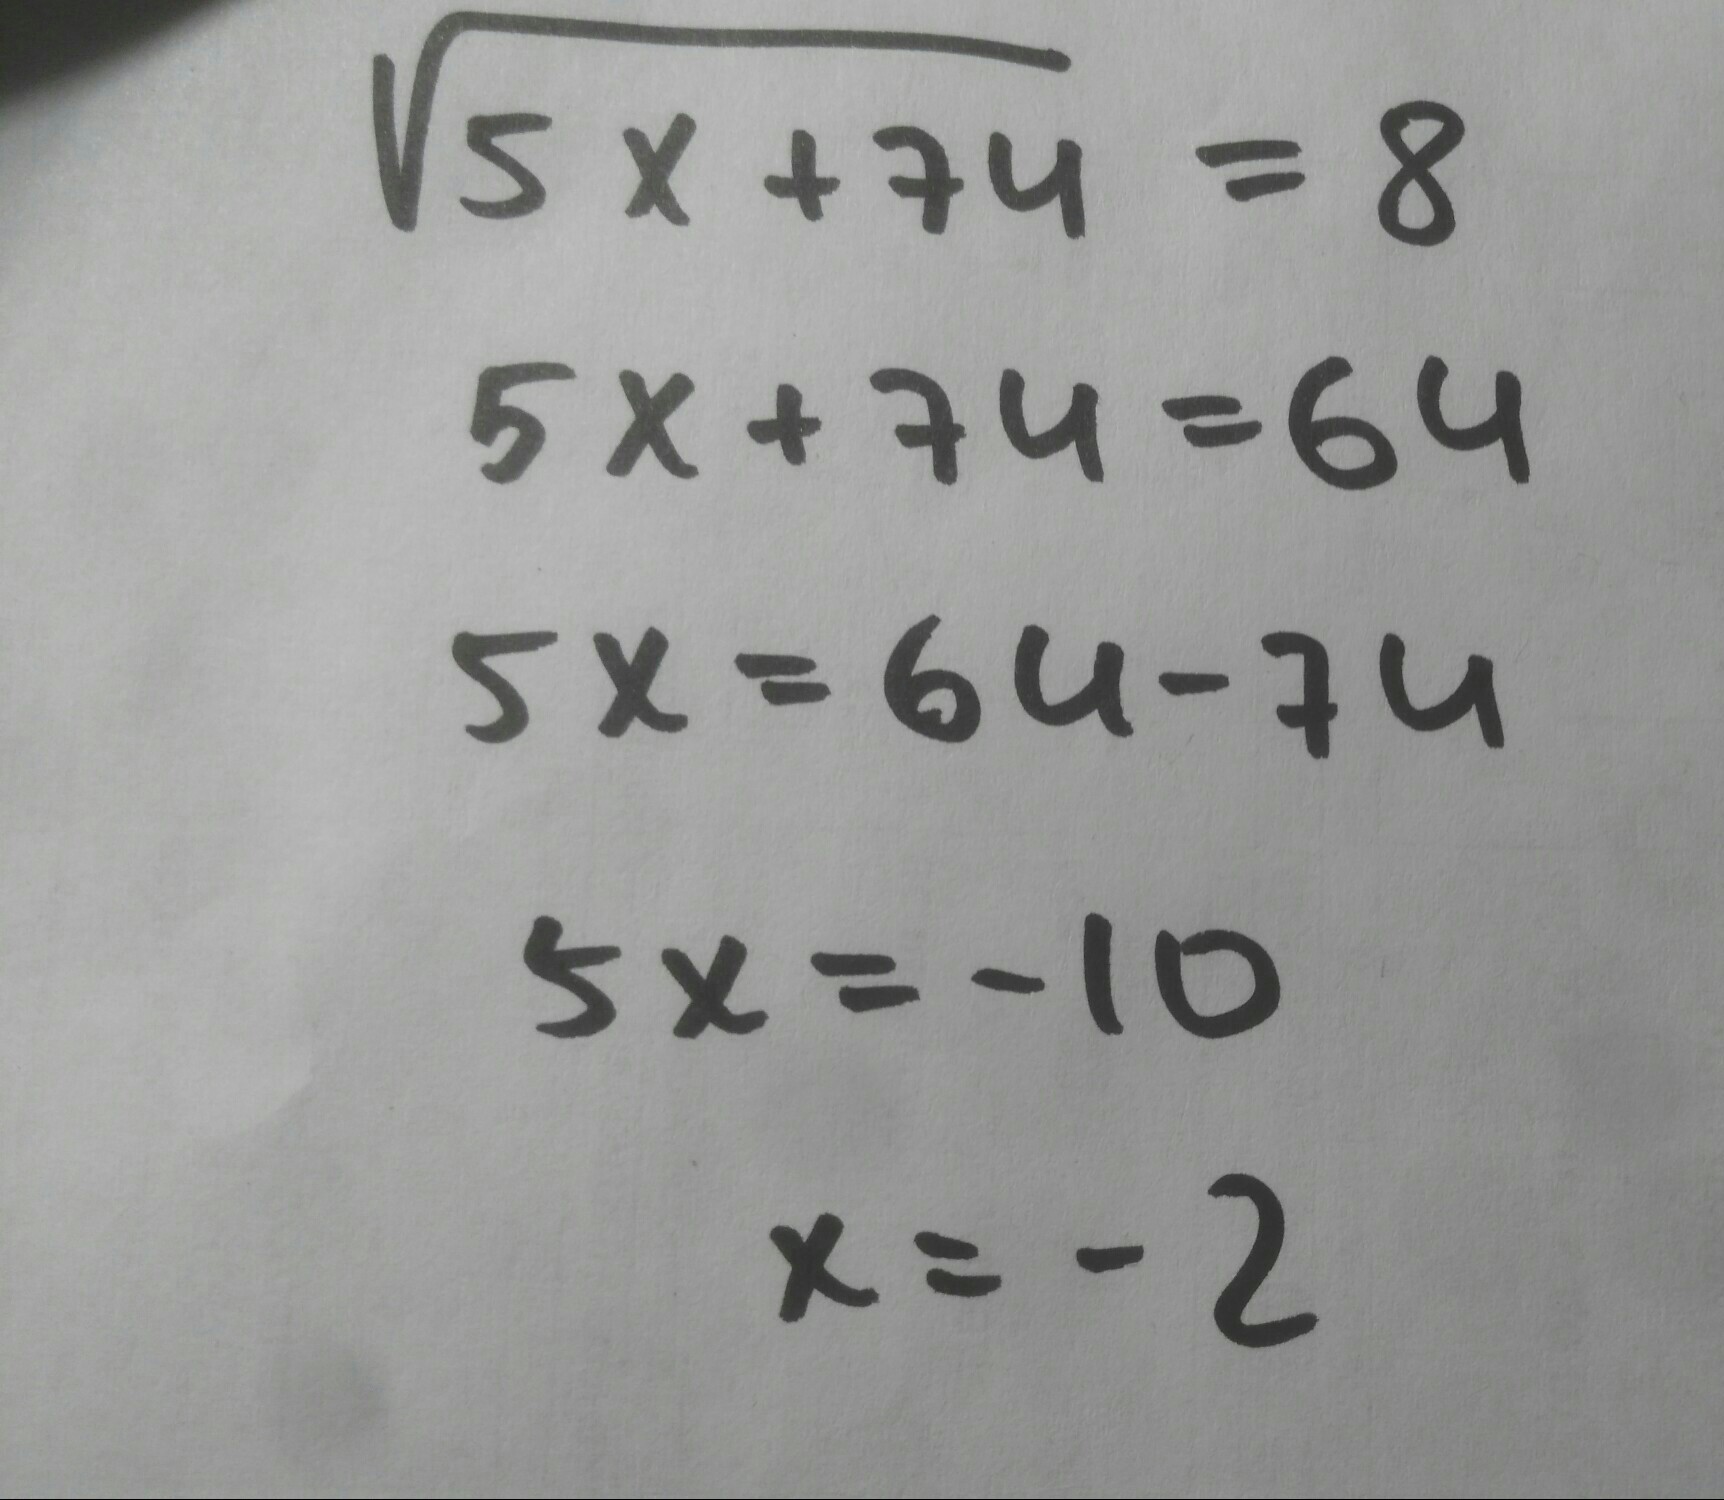 √5x+74 = 8
5x+74=64
5x=64-74
5x=-10
x=-2